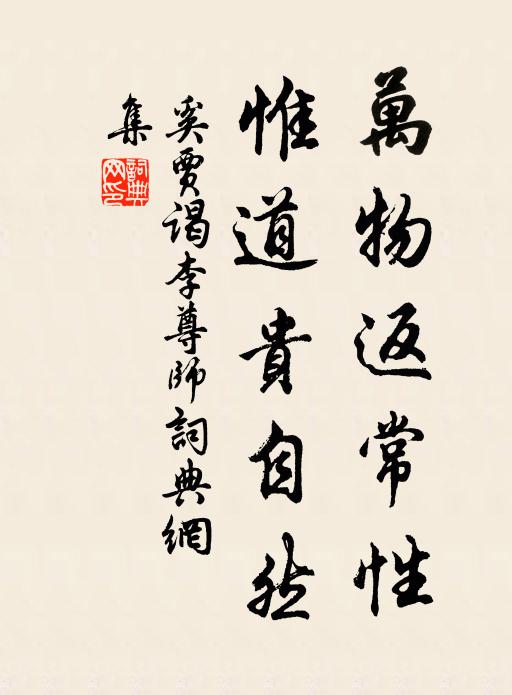 萬物返常性
惟道貴自然
奚賈謁李尊師詞典網
集
詞典
網印